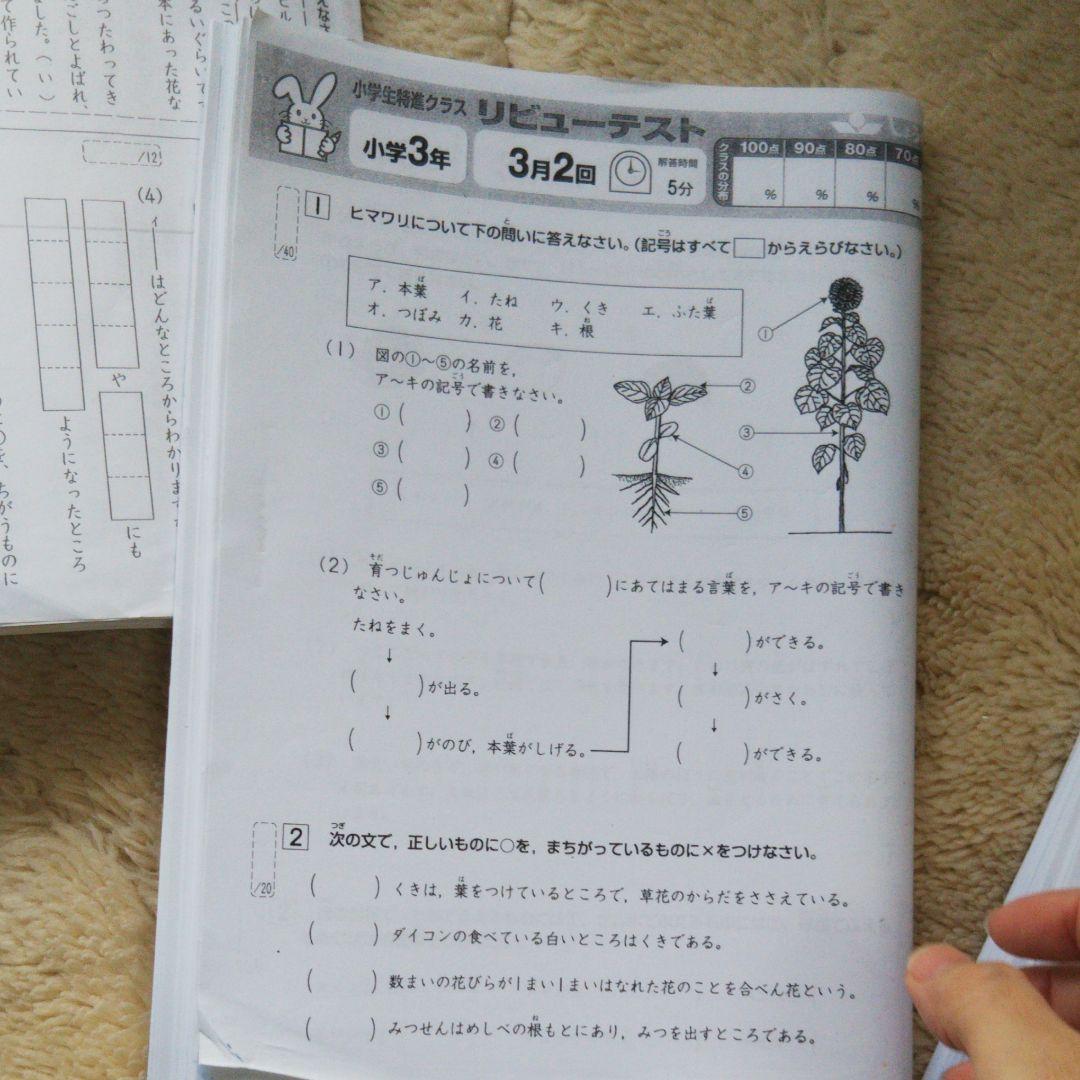 小学生特進クラス リビューテスト
小学3年 3月2回 解答時間 5分
クラスの分布 100点 90点 80点 70点
% % % %
/40
1 ヒマワリについて下の問いに答えなさい。(記号はすべて□からえらびなさい。)
ア.本葉 イ.たね ウ.くき エ.ふた葉
オ.つぼみ カ.花 キ.根
(1) 図の①〜⑤の名前を,
ア〜キの記号で書きなさい。
①( ) ②( )
③( ) ④( )
⑤( )
①
②
③
④
⑤
(2) 育つじゅんじょについて( )にあてはまる言葉を,ア〜キの記号で書き
なさい。
たねをまく。
↓
( )が出る。
↓
( )がのび,本葉がしげる。
( )ができる。
↓
( )がさく。
↓
( )ができる。
/20
2 次の文で,正しいものに○を,まちがっているものに×をつけなさい。
( ) くきは,葉をつけているところで,草花のからだをささえている。
( ) ダイコンの食べている白いところはくきである。
( ) 数まいの花びらが1まい1まいはなれた花のことを合べん花という。
( ) みつせんはめしべの根もとにあり,みつを出すところである。
/12
(4)
はどんなところからわかりま
や
にも
ようになったところ
ちがうものに
るいぐらいで
本にあった花な
つたわってき
こしとよばれ、
ました。(い)
て作られてい